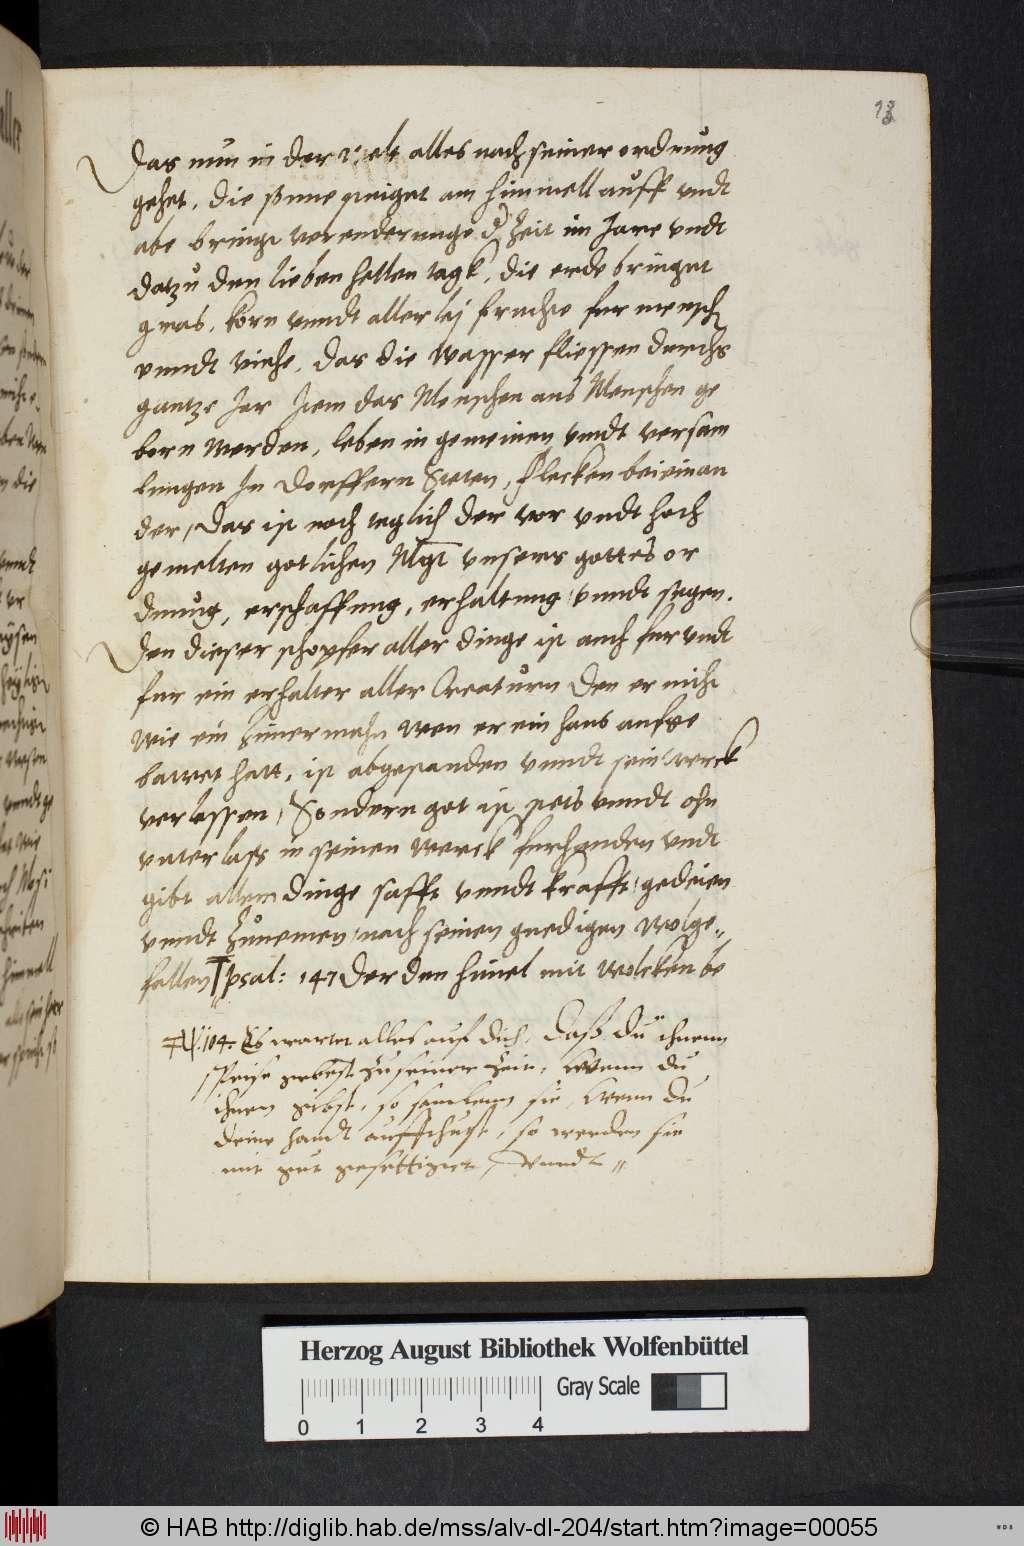 13
Das nun in der welt alles nach seiner ordnung
gehet, die sonne steiget am himmell auff vndt
abe bringt verenderunge d zeit im Jare vndt
datzu den lieben hellen tagk, die erde bringet
gras, korn vnndt allerlej fruchte fur mensch
vnndt viehe, das die Wasser fliessen durchs
gantze Jar Item das Menschen aus Menschen ge
born werden, leben in gemeinen vndt versam
lungen In Dorffern Steten, flecken beieinan
der, Das ist noch teglich der vor vndt hoch
gemelten gotlichen Mgt vnsers gottes or
dnung, erschaffung, erhaltung vnndt segen.
Den dieser schopfer aller dinge ist auch fur vndt
fur ein erhalter aller Creaturn Den er nicht
wie ein Zimermahn wen er ein haus aufge
bawet hatt, ist abgestanden vnndt sein werck
verlassen, Sondern got ist stets vnndt ohn
vnterlass in seinen werck furhanden vndt
gibt allem dinge safft vnndt krafft, gedeien
vnndt zunemen, nach seinen gnedigen wolge„
fallen psal: 147 Der den himel mit wolcken be
104. Es wartet alles auf dich, Daß Du ihnenn
speise gebest zu seiner zeit, Wenn du
ihnen gibst, so samlenn sie, Wenn Du
deine handt auffthust, so werden sie
mit gut gesettiget, vnndt „
Herzog August Bibliothek Wolfenbüttel
Gray Scale
0 1 2 3 4
© HAB http://diglib.hab.de/mss/alv-dl-204/start.htm?image=00055